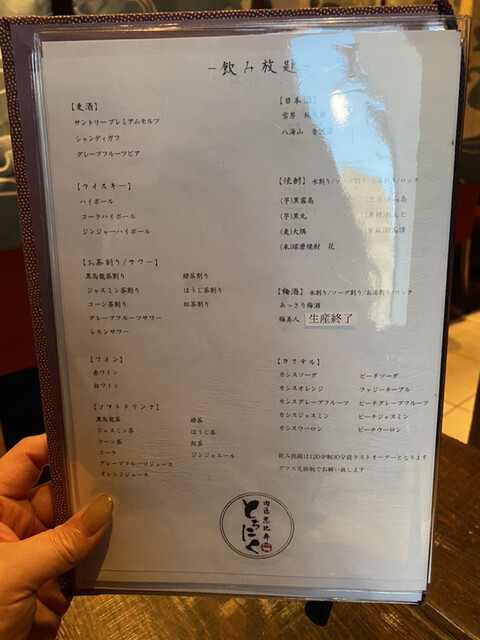 －飲み放題－
【麦酒】
サントリープレミアムモルツ
シャンディガフ
グレープフルーツビア
【ウイスキー】
ハイボール
コーラハイボール
ジンジャーハイボール
【お茶割り/サワー】
黒烏龍茶割り 緑茶割り
ジャスミン茶割り ほうじ茶割り
コーン茶割り 紅茶割り
グレープフルーツサワー
レモンサワー
【ワイン】
赤ワイン
白ワイン
【ソフトドリンク】
黒烏龍茶 緑茶
ジャスミン茶 ほうじ茶
コーン茶 紅茶
コーラ ジンジャエール
グレープフルーツジュース
オレンジジュース
【日本酒】
雪男
八海山
【焼酎】 水割り/ソーダ割り/お湯割り/ロック
(芋)黒霧島
(芋)黒丸
(麦)大隅
(米)球磨焼酎 花
【梅酒】 水割り/ソーダ割り/お湯割り/ロック
あっさり梅酒
梅美人 生産終了
【カクテル】
カシスソーダ ピーチソーダ
カシスオレンジ ファジーネーブル
カシスグレープフルーツ ピーチグレープフルーツ
カシスジャスミン ピーチジャスミン
カシスウーロン ピーチウーロン
飲み放題は120分制30分前ラストオーダーとなります
グラス交換制でお願い致します
肉匠恵比寿
とろにく